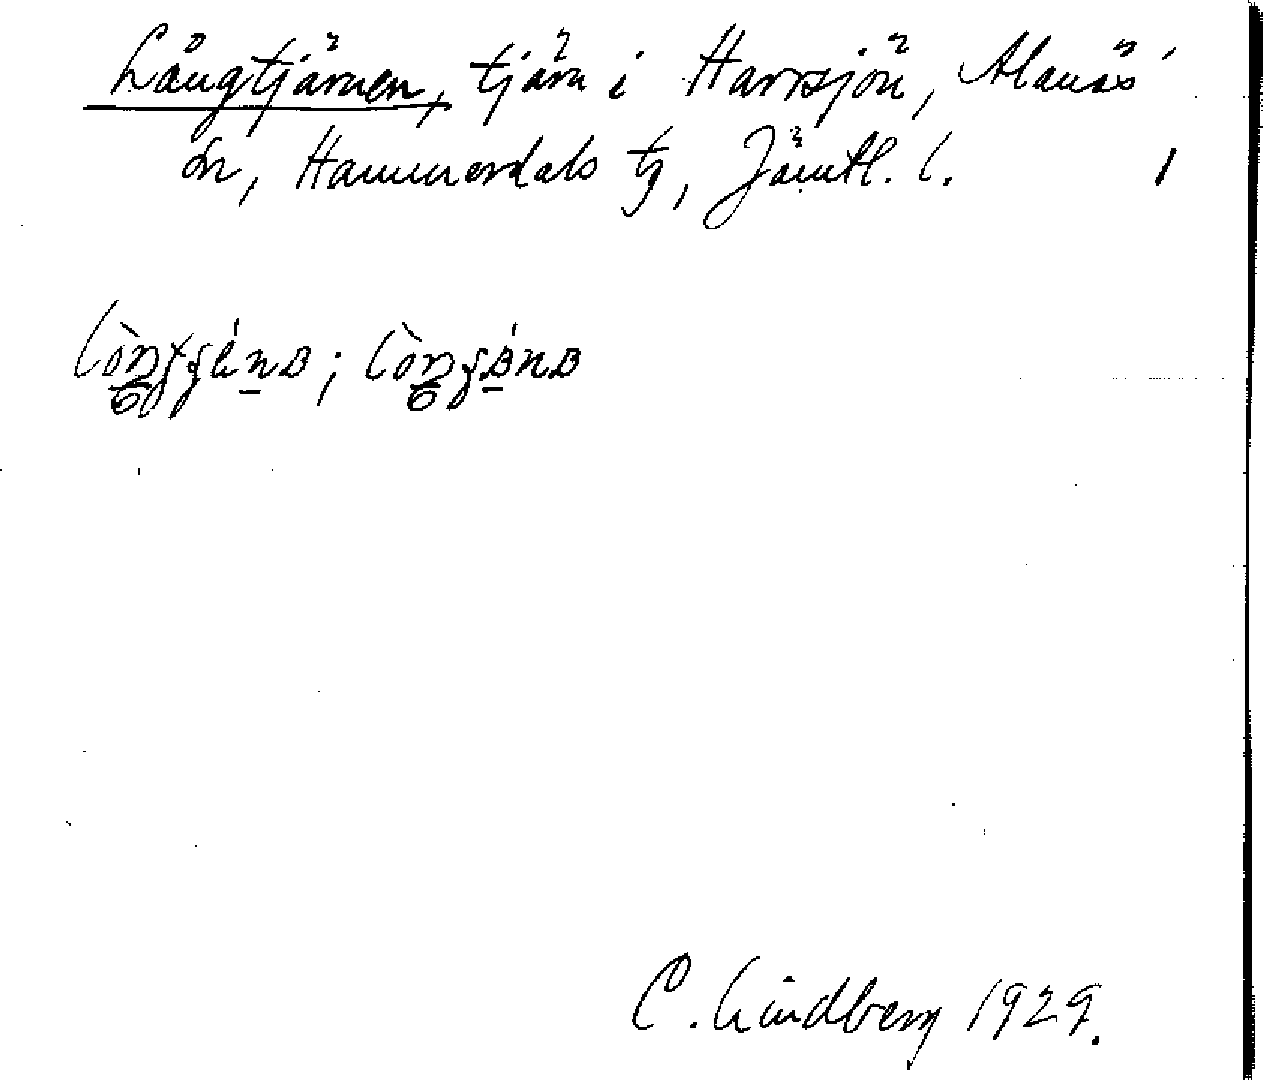 Långtjärnen, tjärn i Harrsjön, Alanäs
sn, Hammerdals tg, Jämtl. l. 1
C. Lindberg 1929.